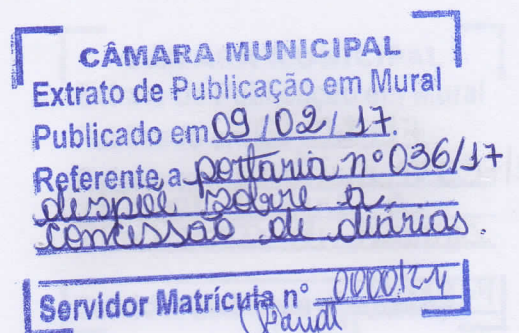 CÂMARA MUNICIPAL
Extrato de Publicação em Mural
Publicado em 09/02/17.
Referente a portaria nº 036/17
despoê sobre a
concessão de diárias.
Servidor Matrícula nº